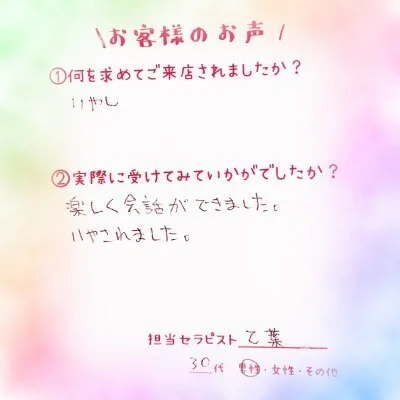 \お客様のお声/
①何を求めてご来店されましたか？
いやし
②実際に受けてみていかがでしたか？
楽しく会話ができました。
いやされました。
担当セラピスト 乙葉
30代 男性・女性・その他